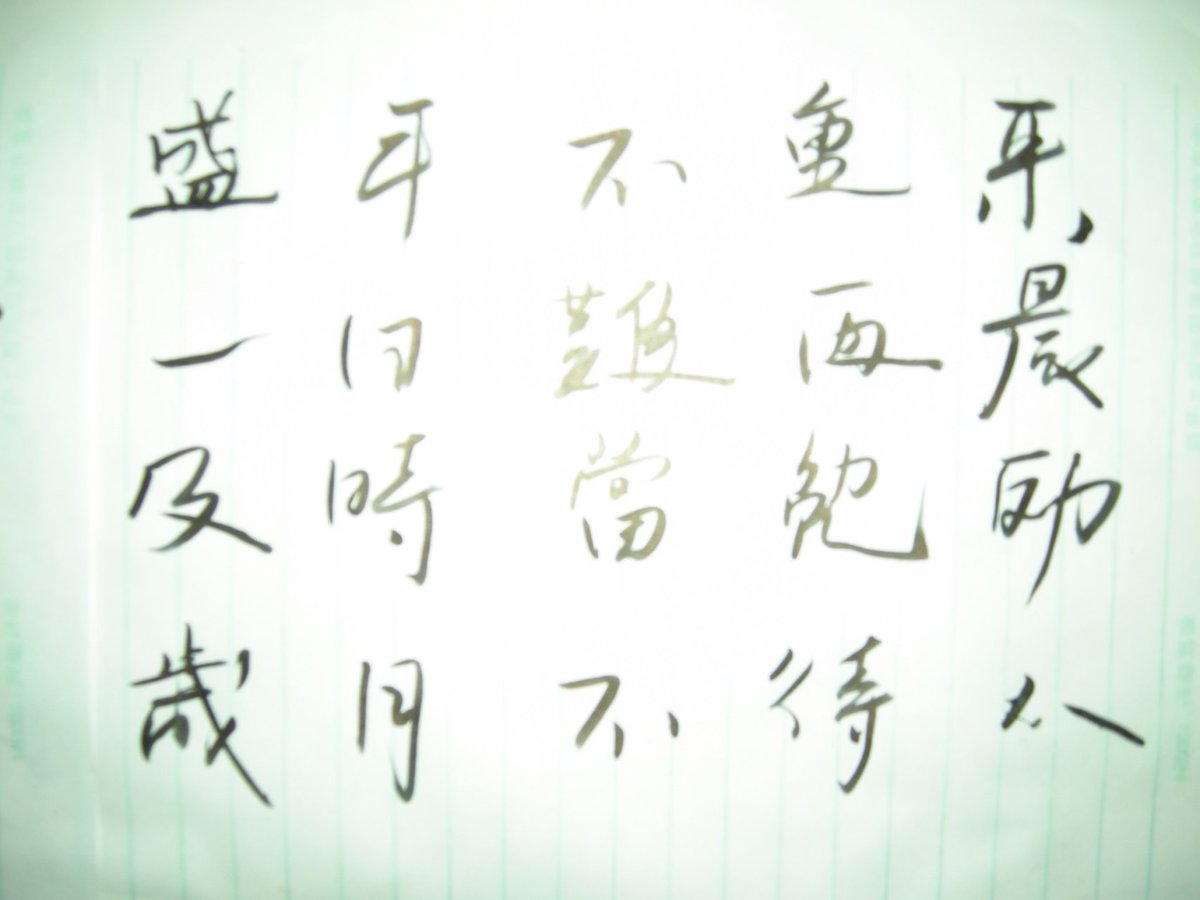 盛年不重来
一日難再晨
及時當勉励
歲月不待人